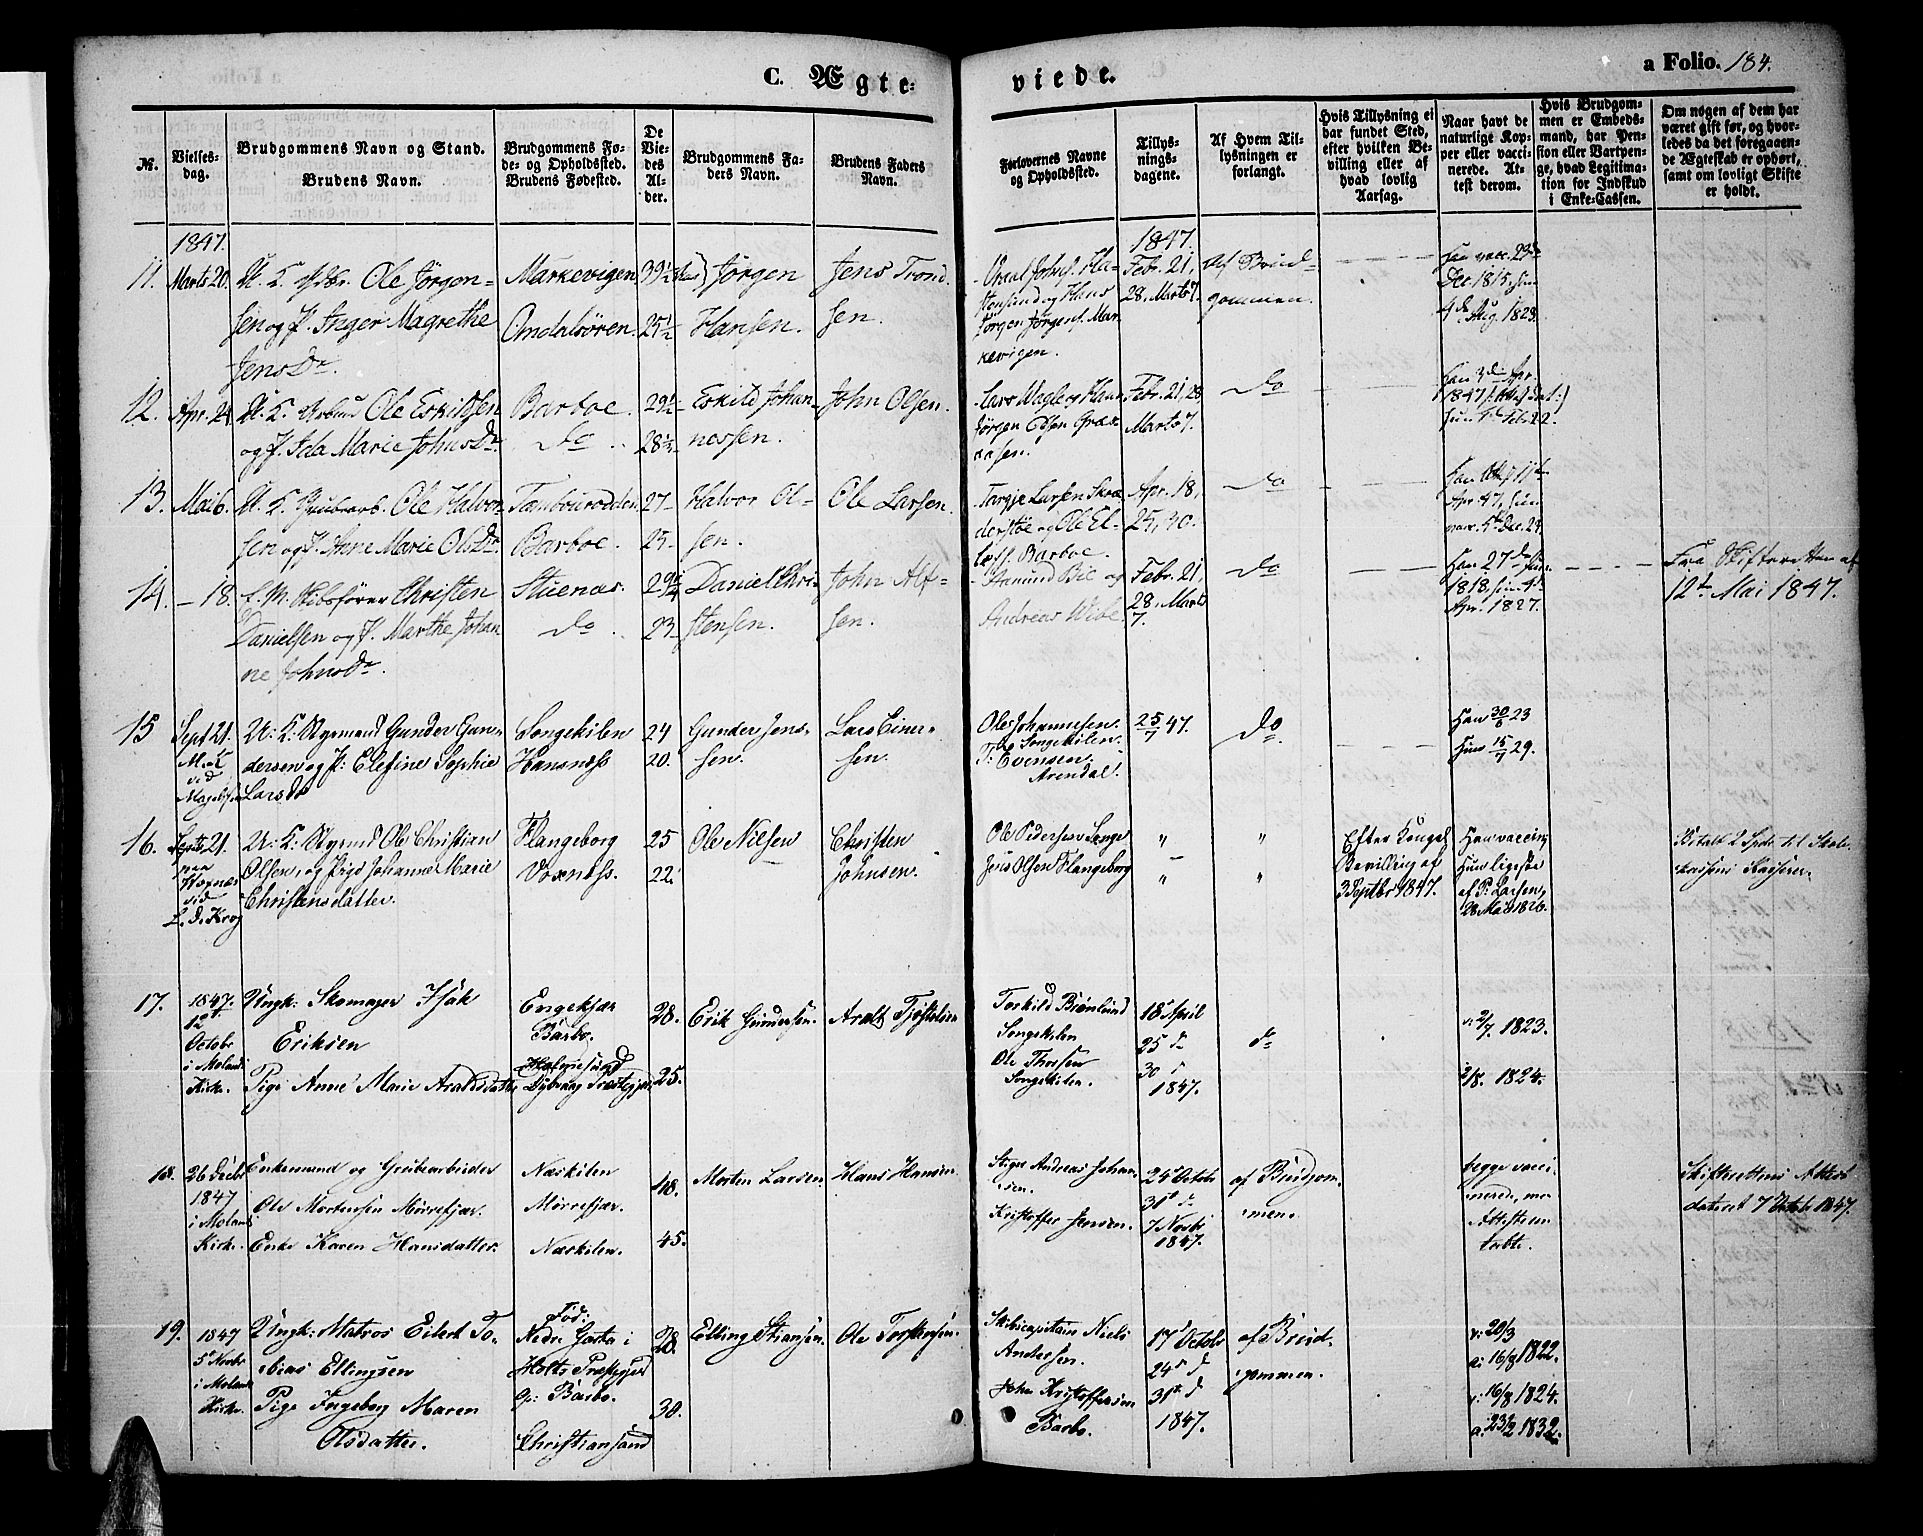 C. Ægte-
viede.
a Folio. 184.
№.
Vielses-
dag.
Brudgommens Navn og Stand.
Brudens Navn.
Brudgommens Fø-
de- og Opholdssted.
Brudens Fødested.
De
Vie-
des
Al-
der.
Brudgommens Fa-
ders Navn.
Brudens Faders
Navn.
Forlovernes Navne
og Opholdssted.
Tillys-
nings-
dagene.
Af Hvem Til-
lysningen er
forlangt.
Hvis Tillysning ei
har fundet Sted,
efter hvilken Be-
villing eller af
hvad lovlig
Aarsag.
Naar havt de
naturlige Kop-
per eller vacci-
nerede. At-
test derom.
Hvis Brudgom-
men er Embeds-
mand, har Pen-
sion eller Vartpen-
ge, hvad Legitima-
tion for Indskud
i Enke-Cassen.
Om nogen af dem har
været gift før, og hvor-
ledes da det foregaaen-
de Ægteskab er ophørt,
samt om lovligt Skifte
er holdt.
1847.
11. Marts 20.
Ole Jørgen-
sen og P. Inger Magrethe
Jensdr.
Markevigen
Omdalsören.
39½
25½
Jørgen
Hansen.
Jens Trond-
sen.
Hans
Jørgen Jørgens. Mar
kevigen.
1847.
Febr. 21,
28, Marts 7.
Af Brud-
gommen.
Han vacc. 29de
Dec 1815, hun
4de Aug. 1823.
12. Apr. 24.
U. K. Ole Eskildsen
og P. Ida Marie Johnsdr.
Barboe.
do
29½
28½
Eskild Johan-
nessen.
John Olsen.
Jørgen Olsen
Febr. 21, 28
Marts 7.
do
Han 3die Apr.
1847
hun Febr. 22.
13. Mai 6.
U. K. Ole Halvor-
sen og P. Anne Marie Olsdr.
Tambourodden
Barboe.
27
25
Halvor Ol-
sen.
Ole Larsen.
Targje Larsen
og Ole El-
Barboe.
Apr. 18,
25, 30.
do
Apr. 47, hun
vacc. 5te Dec. 24
14. - 18.
Christen
Danielsen og P. Marthe Johan
ne Johnsdr.
Stuenæs.
do
29¼
23
Daniel Chri-
stensen.
John Alf-
sen.
Amund Bie og
Andreas Wibe.
Febr. 21,
28, Marts
7.
do
Han 27de
1818, hun 4de
Apr. 1827.
Fra Skifteretten af
12te Mai 1847.
15
Sept 21.
ved
U: K: Styrmand Gunder Gun-
dersen og P: Elefine Sophie
Larsdr
Songekilen
Hansnæss
24
20.
Gunder Jens-
sen.
Lars Einer-
sen.
Ole Johannesen.
Songekilen.
T: Evensen.
Arendal.
25/7 47.
do
Han 30/6 23
Hun 15/7 29.
16.
Septr 21.
paa
ved
L. D. Krog
U: K: Styrmd Ole Christian
Olsen, og Pige Johanne Marie
Christensdatter.
Flangeborg
Voxnæss.
25
22.
Ole Nilsen
Christen
Johnsen.
Ole Pedersen Songe
Jens Olsen Flangeborg
"
"
"
"
Efter Kongel
Bevilling af
3 Septbr 1847.
Han vaccine
Hun ligesaa
af P: Larsen,
28 Mai 1826.
Betalt 2 Spdr til Skole-
kassens Kasserer.
17.
1847.
12te
Octobr
i Molands
Kirke.
Ungk: Skomager Isak
Eriksen
Pige Anne Marie Araltsdatter
Engekjær
Barbo.
Holmesund
Dybvaag Præstegjæld
28.
25.
Erik Gundersen.
Aralt Tjøstelsen
Torkild Brønlund
Songekilen
Ole Thorsen
Songekilen.
18 April
25 d
30
1847.
do
v: 2/7 1823.
2/8. 1824.
18.
26 Decbr
1847
i Molands
Kirke.
Enkemand og Grubearbeider
Ole Mortensen Mørrefjær.
Enke Karen Hansdatter.
Næskilen
Mørrefjær.
Næskilen.
48.
45.
Morten Larsen.
Hans Hansen.
Stigre Andreas Johan-
sen.
Kristoffer Jensen.
24 Octobr
31te d
7 Novbr
1847.
af Brudgom-
men.
begge vacci-
nerede, men
Attesterne
tabte.
Skifterettens Attest
dateret 7 Octob 1847.
19.
1847
5te Novbr
i Molands
Kirke.
Ungk: Matros Eilert To-
bias Ellingsen
Pige Ingeborg Maren
Olsdatter.
Fød:
Nedre Garta i
Holts Præstegjeld
Op: Barbo.
Christiansand
28.
30.
Elling Stiansen.
Ole Torstensen.
Skibscapitain Niels
Andersen.
Johan Kristoffersen
Barbo.
17 Octobr
24 d
31te d
1847.
af Brud-
gommen.
v: 20/3
a: 16/8 1822.
v: 16/8 1824.
a: 23/2 1832.